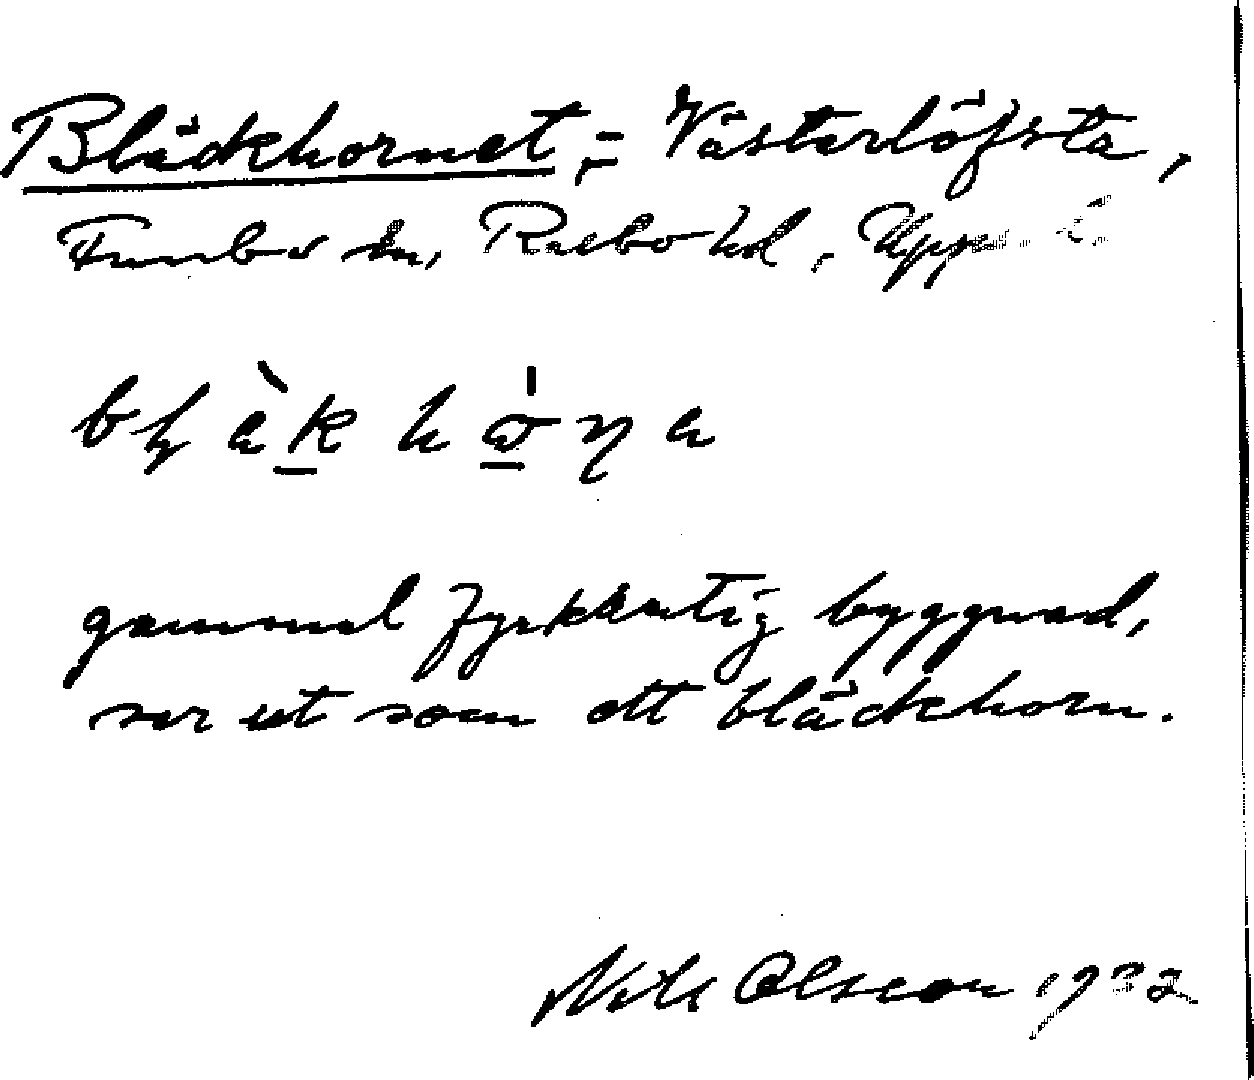 Bläckhornet, = Västerlöfsta,
Funbo sn, Rasbo hd, Uppsala l.
gammal fyrkantig byggnad,
ser ut som ett bläckhorn.
Nils Olsson 1932